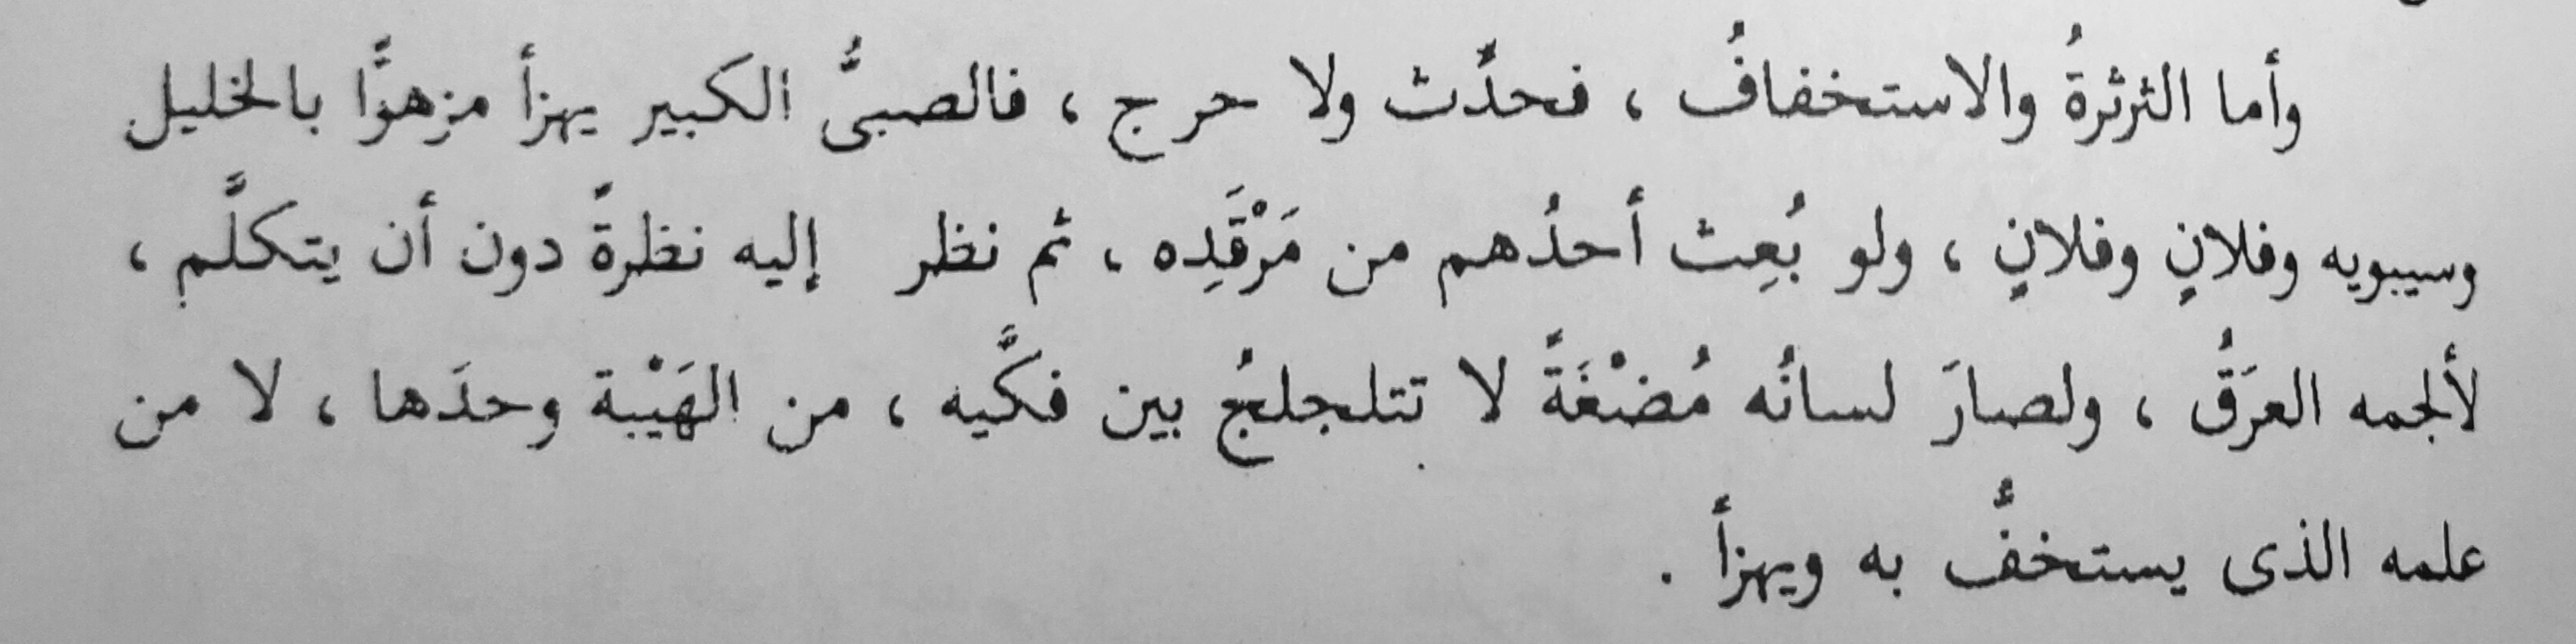 وأما الثرثرةُ والاستخفافُ ، فحدِّث ولا حرج ، فالصبىُّ الكبير يهزأ مزهوًّا بالخليل
وسيبويه وفلانٍ وفلانٍ ، ولو بُعِث أحدُهم من مَرْقَدِه ، ثم نظر إليه نظرةً دون أن يتكلَّم ،
لألجمه العرَقُ ، ولصارَ لسانُه مُضْغَةً لا تتلجلجُ بين فكَّيه ، من الهَيْبة وحدَها ، لا من
علمه الذى يستخفُّ به ويهزأ .